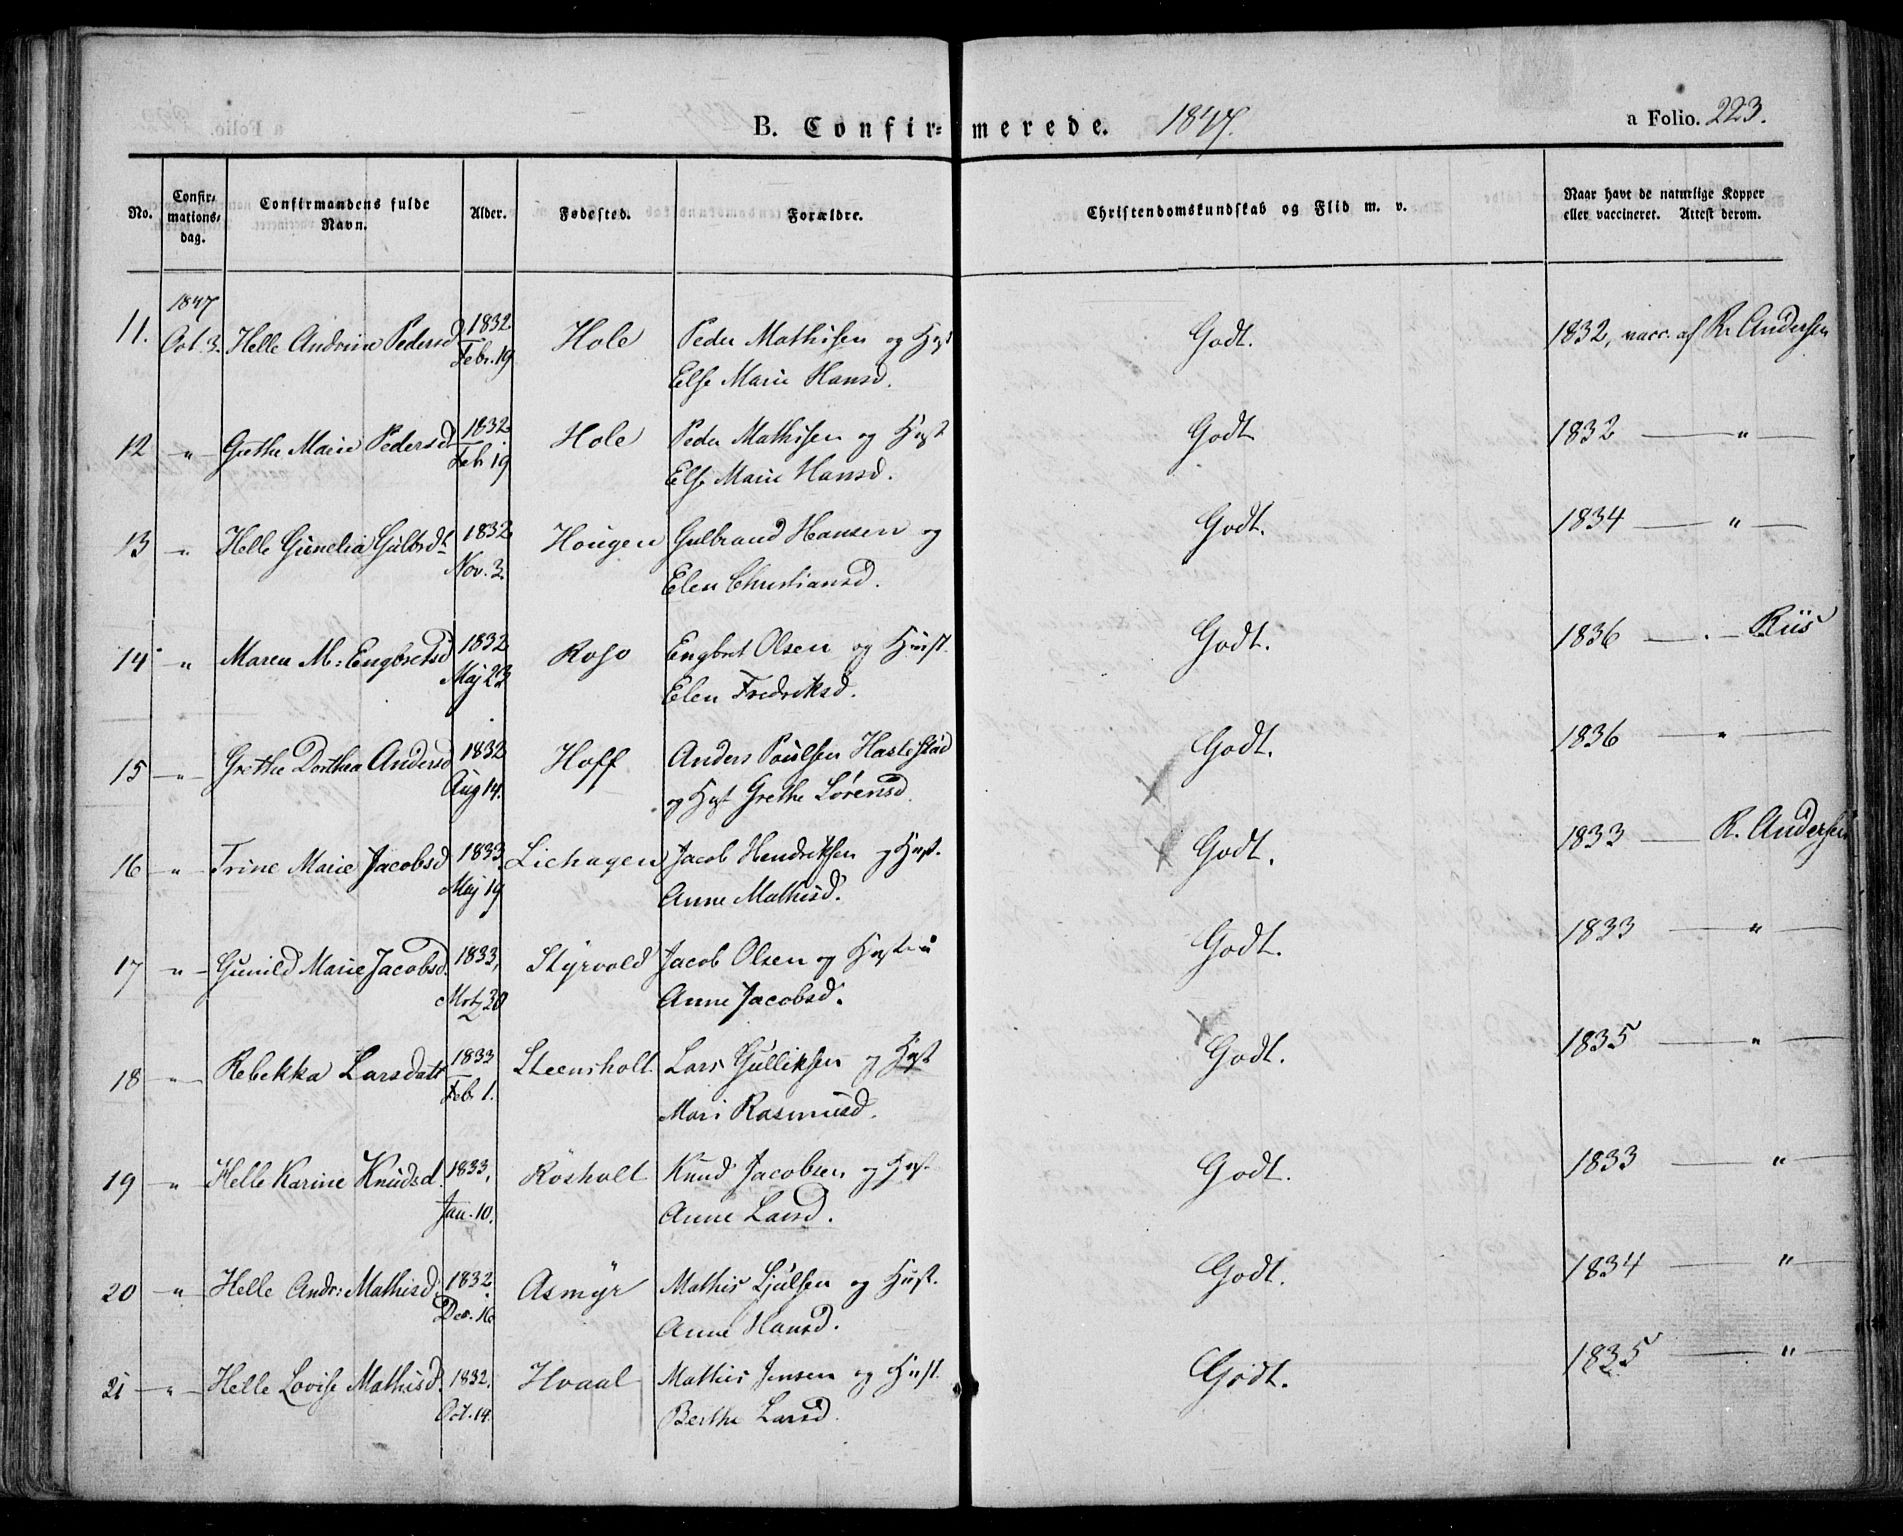 B. Confirmerede. 1847. a Folio. 223.
No. Confirmations-dag. Confirmandens fulde Navn. Alder. Fødested. Forældre. Christendomskundskab og Flid m. v. Naar havt de naturlige Kopper eller vaccineret. Attest derom.
1847 1832
11. Oct. 3. Helle Andrine Pedersd Hole Peder Mathisen og Hust Godt. 1832, vacc. af R. Andersen
Febr. 19 Else Marie Hansd.
1832
12 " Grethe Marie Pedersd Hole Peder Mathisen og Hust Godt 1832 — " —
Feb 19 Else Marie Hansd.
13 " Helle Gunelia Gulbrdt 1832 Hougen Gulbrand Hansen og Godt. 1834 — " —
Nov. 3. Elen Christiansd.
14 " Maren M: Engbretsd 1832 Roso Engbret Olsen og Hust. Godt. 1836 — " — Riis
Maj 23 Elen Fredriksd.
15 " Grethe Dorthea Andersd 1832 Hoff Anders Poulsen Haslestad Godt. 1836 — " —
Aug 14. og Hust Grethe Sørensd.
16 " Trine Marie Jacobsd 1833. Liehagen Jacob Hendriksen og Hust. Godt. 1833 — R. Andersen
Maj 19 Anne Mathisd.
17 " Gunild Marie Jacobsd. 1833, Styrvold Jacob Olsen og Hustru Godt. 1833 — " —
Mrtz 20 Anne Jacobsd.
18 " Rebekka Larsdatt 1833 Steensholt Lars Gulliksen og Hust Godt. 1835 — " —
Feb 1. Mari Rasmusd.
19 " Helle Karine Knudsd. 1833, Rösholt Knud Jacobsen og Hust. Godt. 1833 — "
Jan. 10. Anne Larsd.
20 " Helle Andr: Mathisd. 1832. Asmyr Mathis Ljulsen og Hust. Godt. 1834 — "
Dec. 16 Anne Hansd.
21 " Helle Lovise Mathisd. 1832. Hvaal Mathis Jensen og Hust. Godt. 1835 — "
Oct. 14. Berthe Larsd.